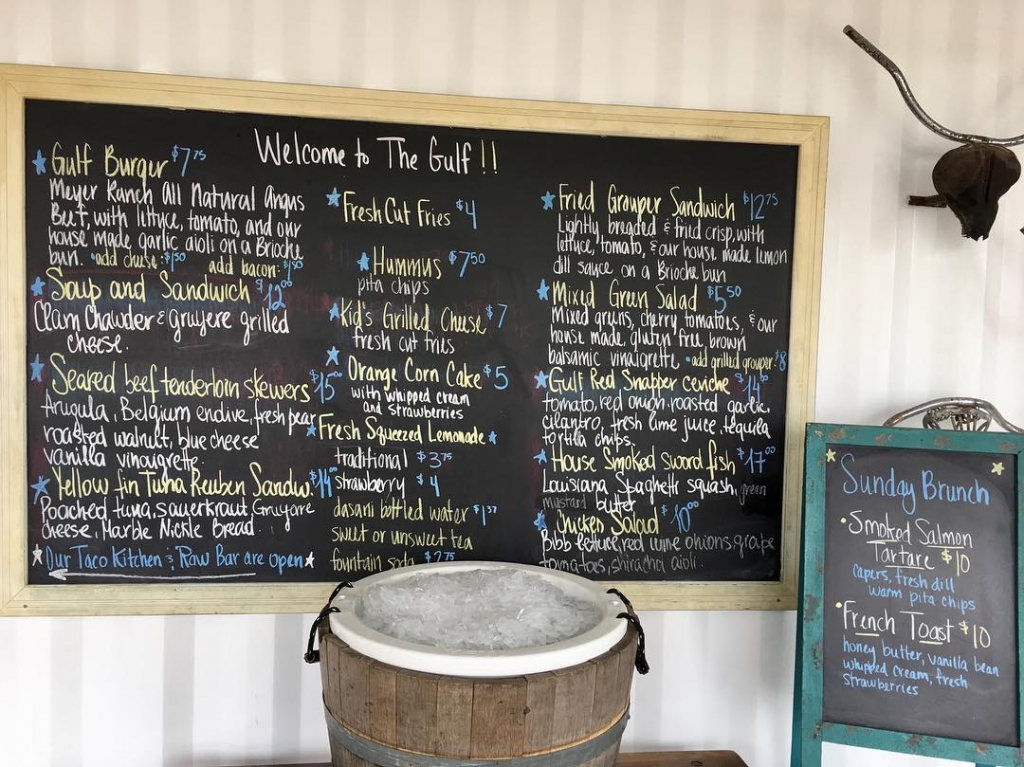 Welcome to The Gulf !!
Gulf Burger $7.75
Meyer Ranch All Natural Angus
Beef, with lettuce, tomato, and our
house made garlic aioli on a Brioche
bun. • add cheese: $1.50 add bacon: $1.50
Soup and Sandwich $12.00
Clam Chawder & gruyere grilled
cheese.
Seared beef tenderloin skewers $15.00
Arugula, Belgium endive, fresh pear
roasted walnut, blue cheese
vanilla vinaigrette
Yellow fin Tuna Reuben Sandw. $14.00
Poached tuna, sauerkraut Gruyere
cheese, Marble Nickle Bread
Our Taco Kitchen & Raw Bar are open
Fresh Cut Fries $4
Hummus $7.50
pita chips
Kid's Grilled Cheese $7
fresh cut fries
Orange Corn Cake $5
with whipped cream
and strawberries
Fresh Squeezed Lemonade
traditional $3.75
strawberry $4
dasani bottled water $1.37
sweet or unsweet tea
fountain soda $2.75
Fried Grouper Sandwich $12.75
Lightly breaded & fried crisp, with
lettuce, tomato, & our house made lemon
dill sauce on a Brioche bun
Mixed Green Salad $5.50
Mixed greens, cherry tomatoes, & our
house made, gluten free, brown
balsamic vinaigrette • add grilled grouper: $8
Gulf Red Snapper ceviche $14.00
tomato, red onion, roasted garlic,
cilantro, fresh lime juice, tequila
tortilla chips.
House Smoked Sword fish $17.00
Louisiana, Spaghetti squash, green
mustard butter
Chicken Salad $10.00
Bibb lettuce, red wine onions, grape
tomatoes, shirachai aioli.
Sunday Brunch
• Smoked Salmon
Tartare $10
capers, fresh dill
warm pita chips
• French Toast $10
honey butter, vanilla bean
whipped cream, fresh
strawberries